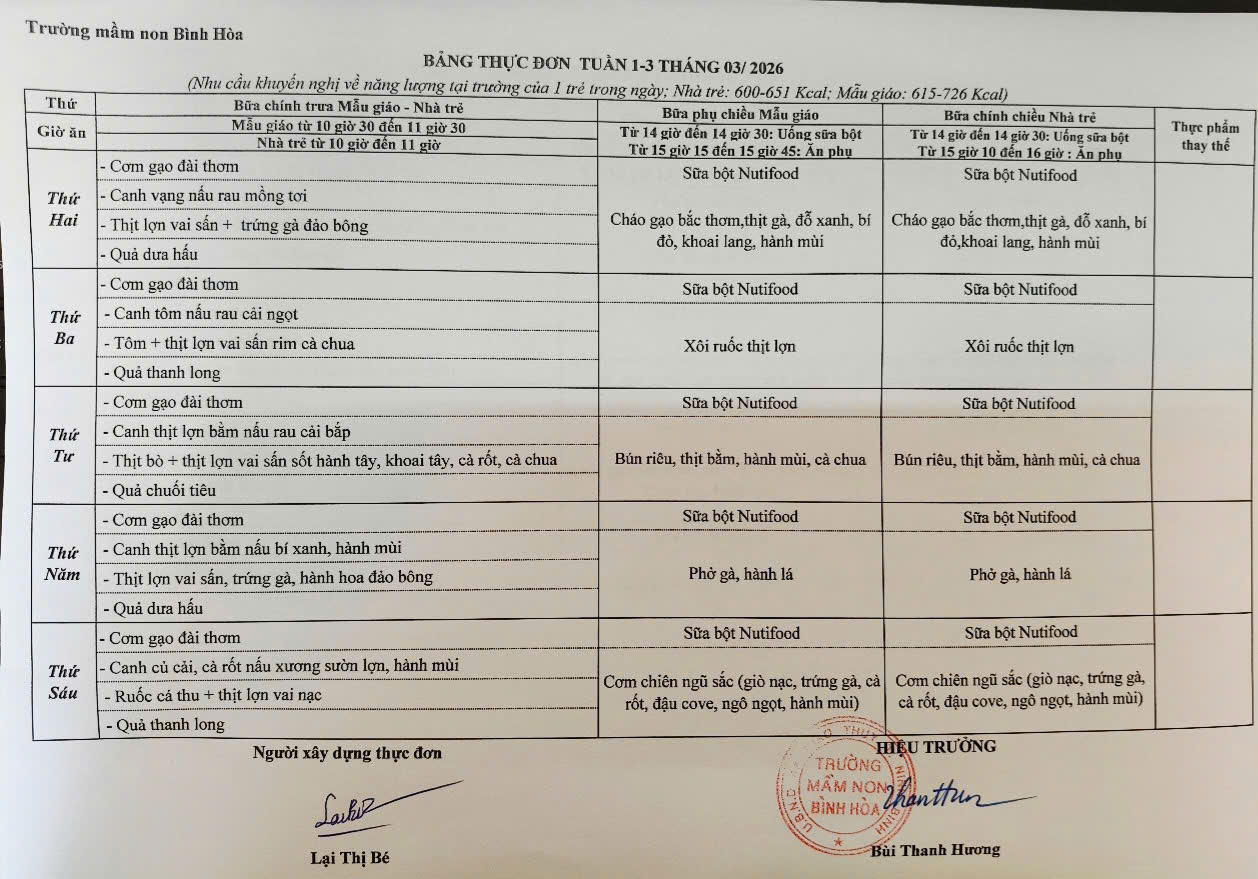 Trường mầm non Bình Hòa
BẢNG THỰC ĐƠN TUẦN 1-3 THÁNG 03/ 2026
(Nhu cầu khuyến nghị về năng lượng tại trường của 1 trẻ trong ngày; Nhà trẻ: 600-651 Kcal; Mẫu giáo: 615-726 Kcal)
Thứ
Bữa chính trưa Mẫu giáo - Nhà trẻ
Bữa phụ chiều Mẫu giáo
Bữa chính chiều Nhà trẻ
Thực phẩm
thay thế
Giờ ăn
Mẫu giáo từ 10 giờ 30 đến 11 giờ 30
Nhà trẻ từ 10 giờ đến 11 giờ
Từ 14 giờ đến 14 giờ 30: Uống sữa bột
Từ 15 giờ 15 đến 15 giờ 45: Ăn phụ
Từ 14 giờ đến 14 giờ 30: Uống sữa bột
Từ 15 giờ 10 đến 16 giờ : Ăn phụ
Thứ
Hai
- Cơm gạo đài thơm
- Canh vạng nấu rau mồng tơi
- Thịt lợn vai sấn + trứng gà đảo bông
- Quả dưa hấu
Sữa bột Nutifood
Cháo gạo bắc thơm,thịt gà, đỗ xanh, bí
đỏ, khoai lang, hành mùi
Sữa bột Nutifood
Cháo gạo bắc thơm,thịt gà, đỗ xanh, bí
đỏ,khoai lang, hành mùi
Thứ
Ba
- Cơm gạo đài thơm
- Canh tôm nấu rau cải ngọt
- Tôm + thịt lợn vai sấn rim cà chua
- Quả thanh long
Sữa bột Nutifood
Xôi ruốc thịt lợn
Sữa bột Nutifood
Xôi ruốc thịt lợn
Thứ
Tư
- Cơm gạo đài thơm
- Canh thịt lợn bằm nấu rau cải bắp
- Thịt bò + thịt lợn vai sấn sốt hành tây, khoai tây, cà rốt, cà chua
- Quả chuối tiêu
Sữa bột Nutifood
Bún riêu, thịt bằm, hành mùi, cà chua
Sữa bột Nutifood
Bún riêu, thịt bằm, hành mùi, cà chua
Thứ
Năm
- Cơm gạo đài thơm
- Canh thịt lợn bằm nấu bí xanh, hành mùi
- Thịt lợn vai sấn, trứng gà, hành hoa đảo bông
- Quả dưa hấu
Sữa bột Nutifood
Phở gà, hành lá
Sữa bột Nutifood
Phở gà, hành lá
Thứ
Sáu
- Cơm gạo đài thơm
- Canh củ cải, cà rốt nấu xương sườn lợn, hành mùi
- Ruốc cá thu + thịt lợn vai nạc
- Quả thanh long
Sữa bột Nutifood
Cơm chiên ngũ sắc (giò nạc, trứng gà, cà
rốt, đậu cove, ngô ngọt, hành mùi)
Sữa bột Nutifood
Cơm chiên ngũ sắc (giò nạc, trứng gà,
cà rốt, đậu cove, ngô ngọt, hành mùi)
Người xây dựng thực đơn
HIỆU TRƯỞNG
TRƯỜNG
MẦM NON
BÌNH HÒA
Lại Thị Bé
Bùi Thanh Hương